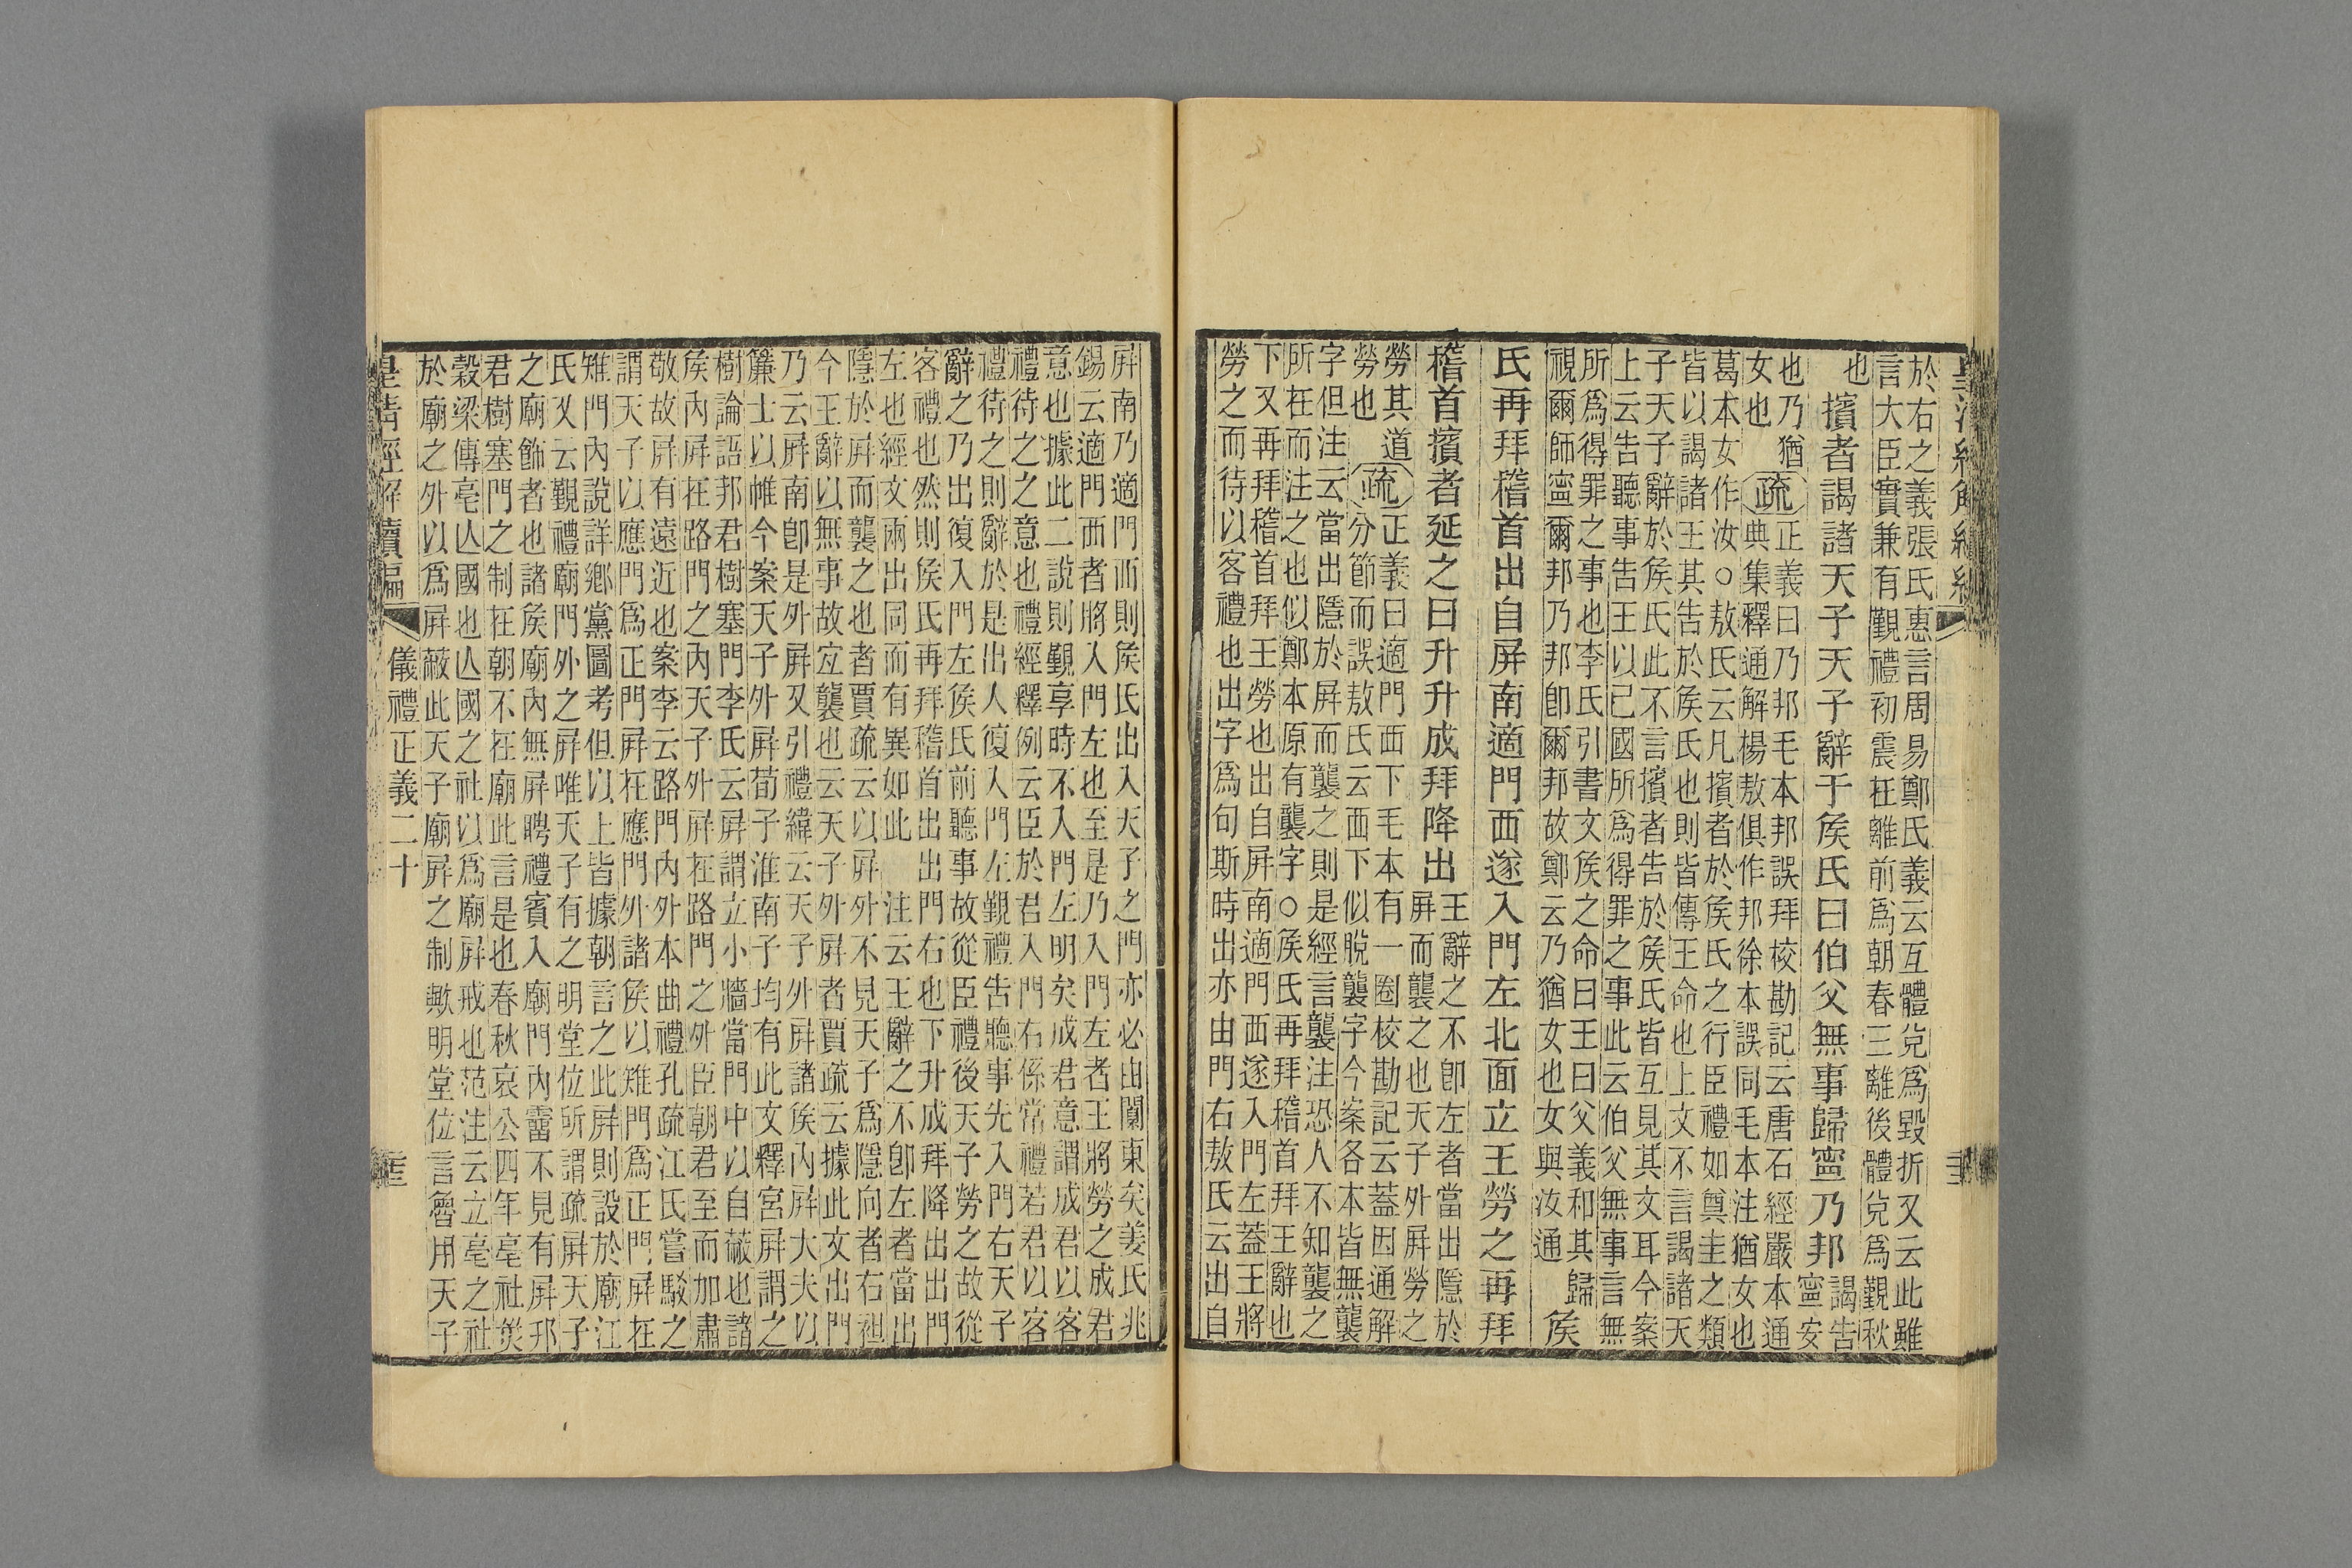 於右之義張氏惠言周易鄭氏義云互體兌爲毀折又云此雖
言大臣實兼有覲禮初震在離前爲朝春三離後體兌爲覲秋
也
擯者謁諸天子天子辭于侯氏曰伯父無事歸寧乃邦
謁告
寧安
也乃猶
女也
疏
正義曰乃邦毛本邦誤拜校勘記云唐石經嚴本通
典集釋通解楊敖俱作邦徐本誤同毛本注猶女也
葛本女作汝○敖氏云凡擯者於侯氏之行臣禮如奠圭之類
皆以謁諸王其告於侯氏也則皆傳王命也上文不言謁諸天
子天子辭於侯氏此不言擯者告於侯氏皆互見其文耳今案
上云告聽事告王以已國所爲得罪之事此云伯父無事言無
所爲得罪之事也李氏引書文侯之命曰王曰父義和其歸
視爾師寧爾邦乃邦卽爾邦故鄭云乃猶女也女與汝通
侯
氏再拜稽首出自屏南適門西遂入門左北面立王勞之再拜
稽首擯者延之曰升升成拜降出
王辭之不卽左者當出隱於
屏而襲之也天子外屏勞之
勞其道
勞也
疏
正義曰適門西下毛本有一圈校勘記云蓋因通解
分節而誤敖氏云西下似脫襲字今案各本皆無襲
字但注云當出隱於屏而襲之則是經言襲注恐人不知襲之
所在而注之也似鄭本原有襲字○侯氏再拜稽首拜王辭也
下又再拜稽首拜王勞也出自屏南適門西遂入門左蓋王將
勞之而待以客禮也出字爲句斯時出亦由門右敖氏云出自
屏南乃適門西則侯氏出入天子之門亦必由闑東矣姜氏兆
錫云適門西者將入門左也至是乃入門左者王將勞之成君
意也據此二說則覲享時不入門左明矣成君意謂成君以客
禮待之之意也禮經釋例云臣於君入門右係常禮若君以客
禮待之則辭於是出人復入門左覲禮告聽事先入門右天子
辭之乃出復入門左侯氏前聽事故從臣禮後天子勞之故從
客禮也然則侯氏再拜稽首出出門右也下升成拜降出出門
左也經文兩出同而有異如此　注云王辭之不卽左者當出
隱於屏而襲之也者賈疏云以屏外不見天子爲隱向者右袒
今王辭以無事故宐襲也云天子外屏者賈疏云據此文出門
乃云屏南卽是外屏又引禮緯云天子外屏諸侯內屏大夫以
簾士以帷今案天子外屏荀子淮南子均有此文釋宮屏謂之
樹論語邦君樹塞門李氏云屏謂立小牆當門中以自蔽也諸
侯內屏在路門之內天子外屏在路門之外臣朝君至而加肅
敬故屏有遠近也案李云路門內外本曲禮孔疏江氏嘗駁之
謂天子以應門爲正門屏在應門外諸侯以雉門爲正門屏在
雉門內說詳鄉黨圖考但以上皆據朝言之此屏則設於廟江
氏又云覲禮廟門外之屏唯天子有之明堂位所謂疏屏天子
之廟飾者也諸侯廟內無屏聘禮賓入廟門內霤不見有屏邦
君樹塞門之制在朝不在廟此言是也春秋哀公四年亳社災
穀梁傳亳亾國也亾國之社以爲廟屏戒也范注云立亳之社
於廟之外以爲屏蔽此天子廟屏之制歟明堂位言魯用天子
皇淸經解續編
儀禮正義二十